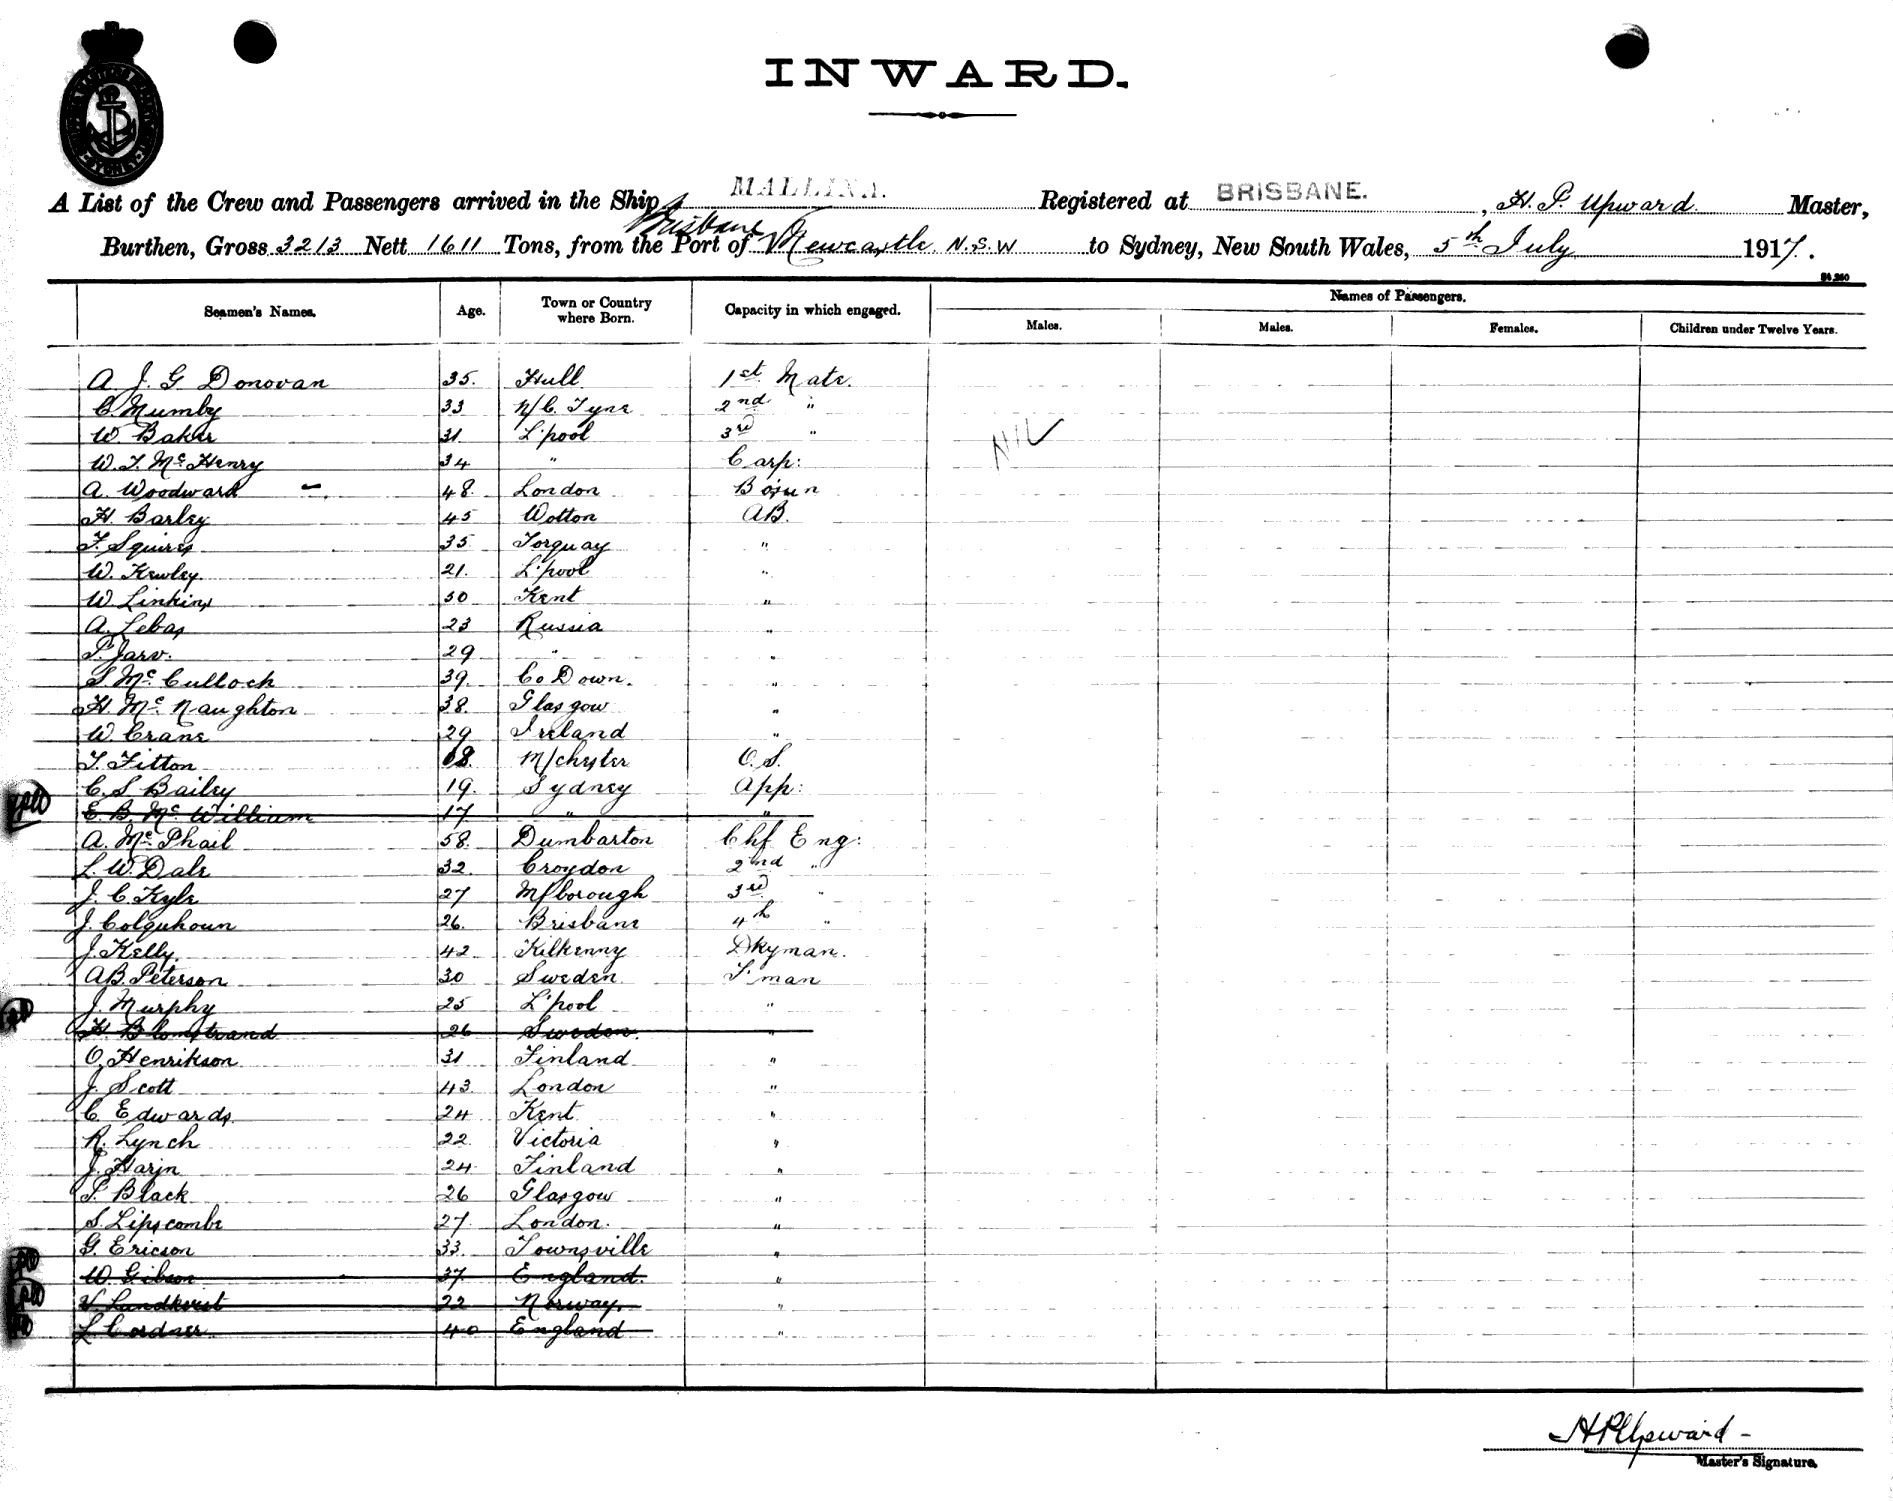 INWARD.
A List of the Crew and Passengers arrived in the Ship MALLINA. Registered at BRISBANE. , H. P. Upward Master,
Burthen, Gross 3213 Nett 1611 Tons, from the Port of Brisbane Newcastle N.S.W to Sydney, New South Wales, 5th July 1917.
Seamen's Names. Age. Town or Country where Born. Capacity in which engaged. Names of Passengers.
Males. Males. Females. Children under Twelve Years.
A. J. G Donovan 35. Hull 1st Mate.
C. Mumby 33 N/C. Tyne 2nd "
W. Baker 31 L'pool 3rd "
NIL
W. T. McHenry 34 " Carp:
A. Woodward 48. London Bosun
H. Barley 45 Wotton AB.
F. Squires 35 Torquay "
W. Kewley. 21. L'pool "
W. Linkins 30 Kent "
A. Lebas 23 Russia "
P. Jarv. 29 " "
S. McCulloch 39. Co Down. "
H. McNaughton 38. Glasgow "
W. Crane 29 Ireland "
T. Fitton 18. M/chester O.S.
C. S Bailey 19. Sydney App:
E. B. McWilliam 17 " "
A. McPhail 58. Dumbarton Chf Eng:
L. W. Dale 32. Croydon 2nd "
J. C. Kyle 27 M/borough 3rd "
J. Colquhoun 26. Brisbane 4th "
J. Kelly. 42 Kilkenny Dkyman.
A.B. Peterson 30 Sweden F'man
J. Murphy 25 L'pool "
H. Blomstrand 26 Sweden. "
O. Henrikson 31 Finland "
J. Scott 43 London "
C. Edwards. 24 Kent "
R. Lynch 22 Victoria "
J. Harjn 24 Finland "
P. Black 26 Glasgow "
S. Lipscombe 27. London. "
G. Ericson 33. Townsville "
W. Gibson 37. England. "
V. Lundkvist 22 Norway. "
L. Cordner 40 England "
H P Upward -
Master's Signature.